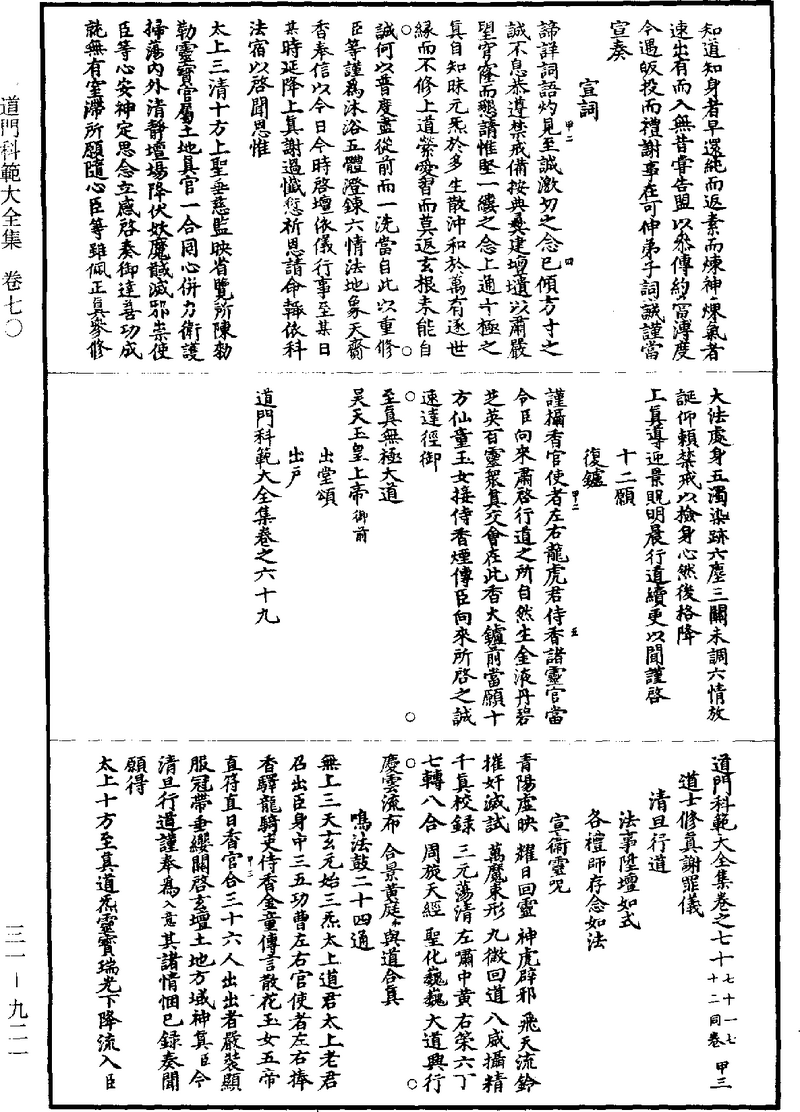 道門科範大全集 卷七〇
三一—九二一
知道知身者早還純而返素而煉神煉氣者
速出有而入無昔嘗告盟以忝傳約當溥度
令遇皈投而禮謝事在可伸弟子詞誠謹當
宣奏
宣詞
諦詳詞語灼見至誠激切之念已傾方寸之
誠不息恭遵禁戒備按典彝建壇墠以肅嚴
望穹窿而懇請惟堅一縷之念上通十極之
真自知昧元炁於多生散沖和於萬有逐世
緣而不修上道縈愛習而莫返玄根未能自
誠何以普度盡從前而一洗當自此以重修
臣等謹為沐浴五體澄鍊六情法地象天齋
香奉信以今日今時啓壇依儀行事至某日
某時延降上真謝過懺愆祈恩請命輙依科
法宿以啓聞恩惟
太上三清十方上聖垂慈監映省覽所陳勑
勒靈寶官屬土地真官一合同心併力衛護
掃蕩內外清靜壇場降伏妖魔馘滅邪祟使
臣等心安神定思念立感啓奏御達善功成
就無有窒滯所願隨心臣等雖佩正真參修
大法處身五濁染跡六塵三關未調六情放
誕仰賴禁戒以撿身心然後格降
上真導迎景貺明晨行道續更以聞謹啓
十二願
復鑪
謹攝香官使者左右龍虎君侍香諸靈官當
令臣向來肅啓行道之所自然生金液丹碧
芝英百靈衆真交會在此香火鑪前當願十
方仙童玉女接侍香煙傳臣向來所啓之誠
速達徑御
至真無極大道
昊天玉皇上帝御前
出堂頌
出戶
道門科範大全集卷之六十九
道門科範大全集卷之七十 七十一七十二同卷 甲三
道士修真謝罪儀
清旦行道
法事陞壇如式
各禮師存念如法
宣衛靈呪
青陽虛映 耀日回靈 神虎辟邪 飛天流鈴
摧奸滅試 萬魔束形 九微回道 八威攝精
千真校錄 三元蕩清 左嘯中黃 右策六丁
七轉八合 周旋天經 聖化巍巍 大道興行
慶雲流布 合景黃庭 與道合真
鳴法鼓二十四通
無上三天玄元始三炁太上道君太上老君
召出臣身中三五功曹左右官使者左右捧
香驛龍騎吏侍香金童傳言散花玉女五帝
直符直日香官合三十六人出出者嚴裝顯
服冠帶垂纓關啓玄壇土地方域神真臣今
清旦行道謹奉為入意某諸情悃已錄奏聞
願得
太上十方至真道炁靈寶瑞光下降流入臣